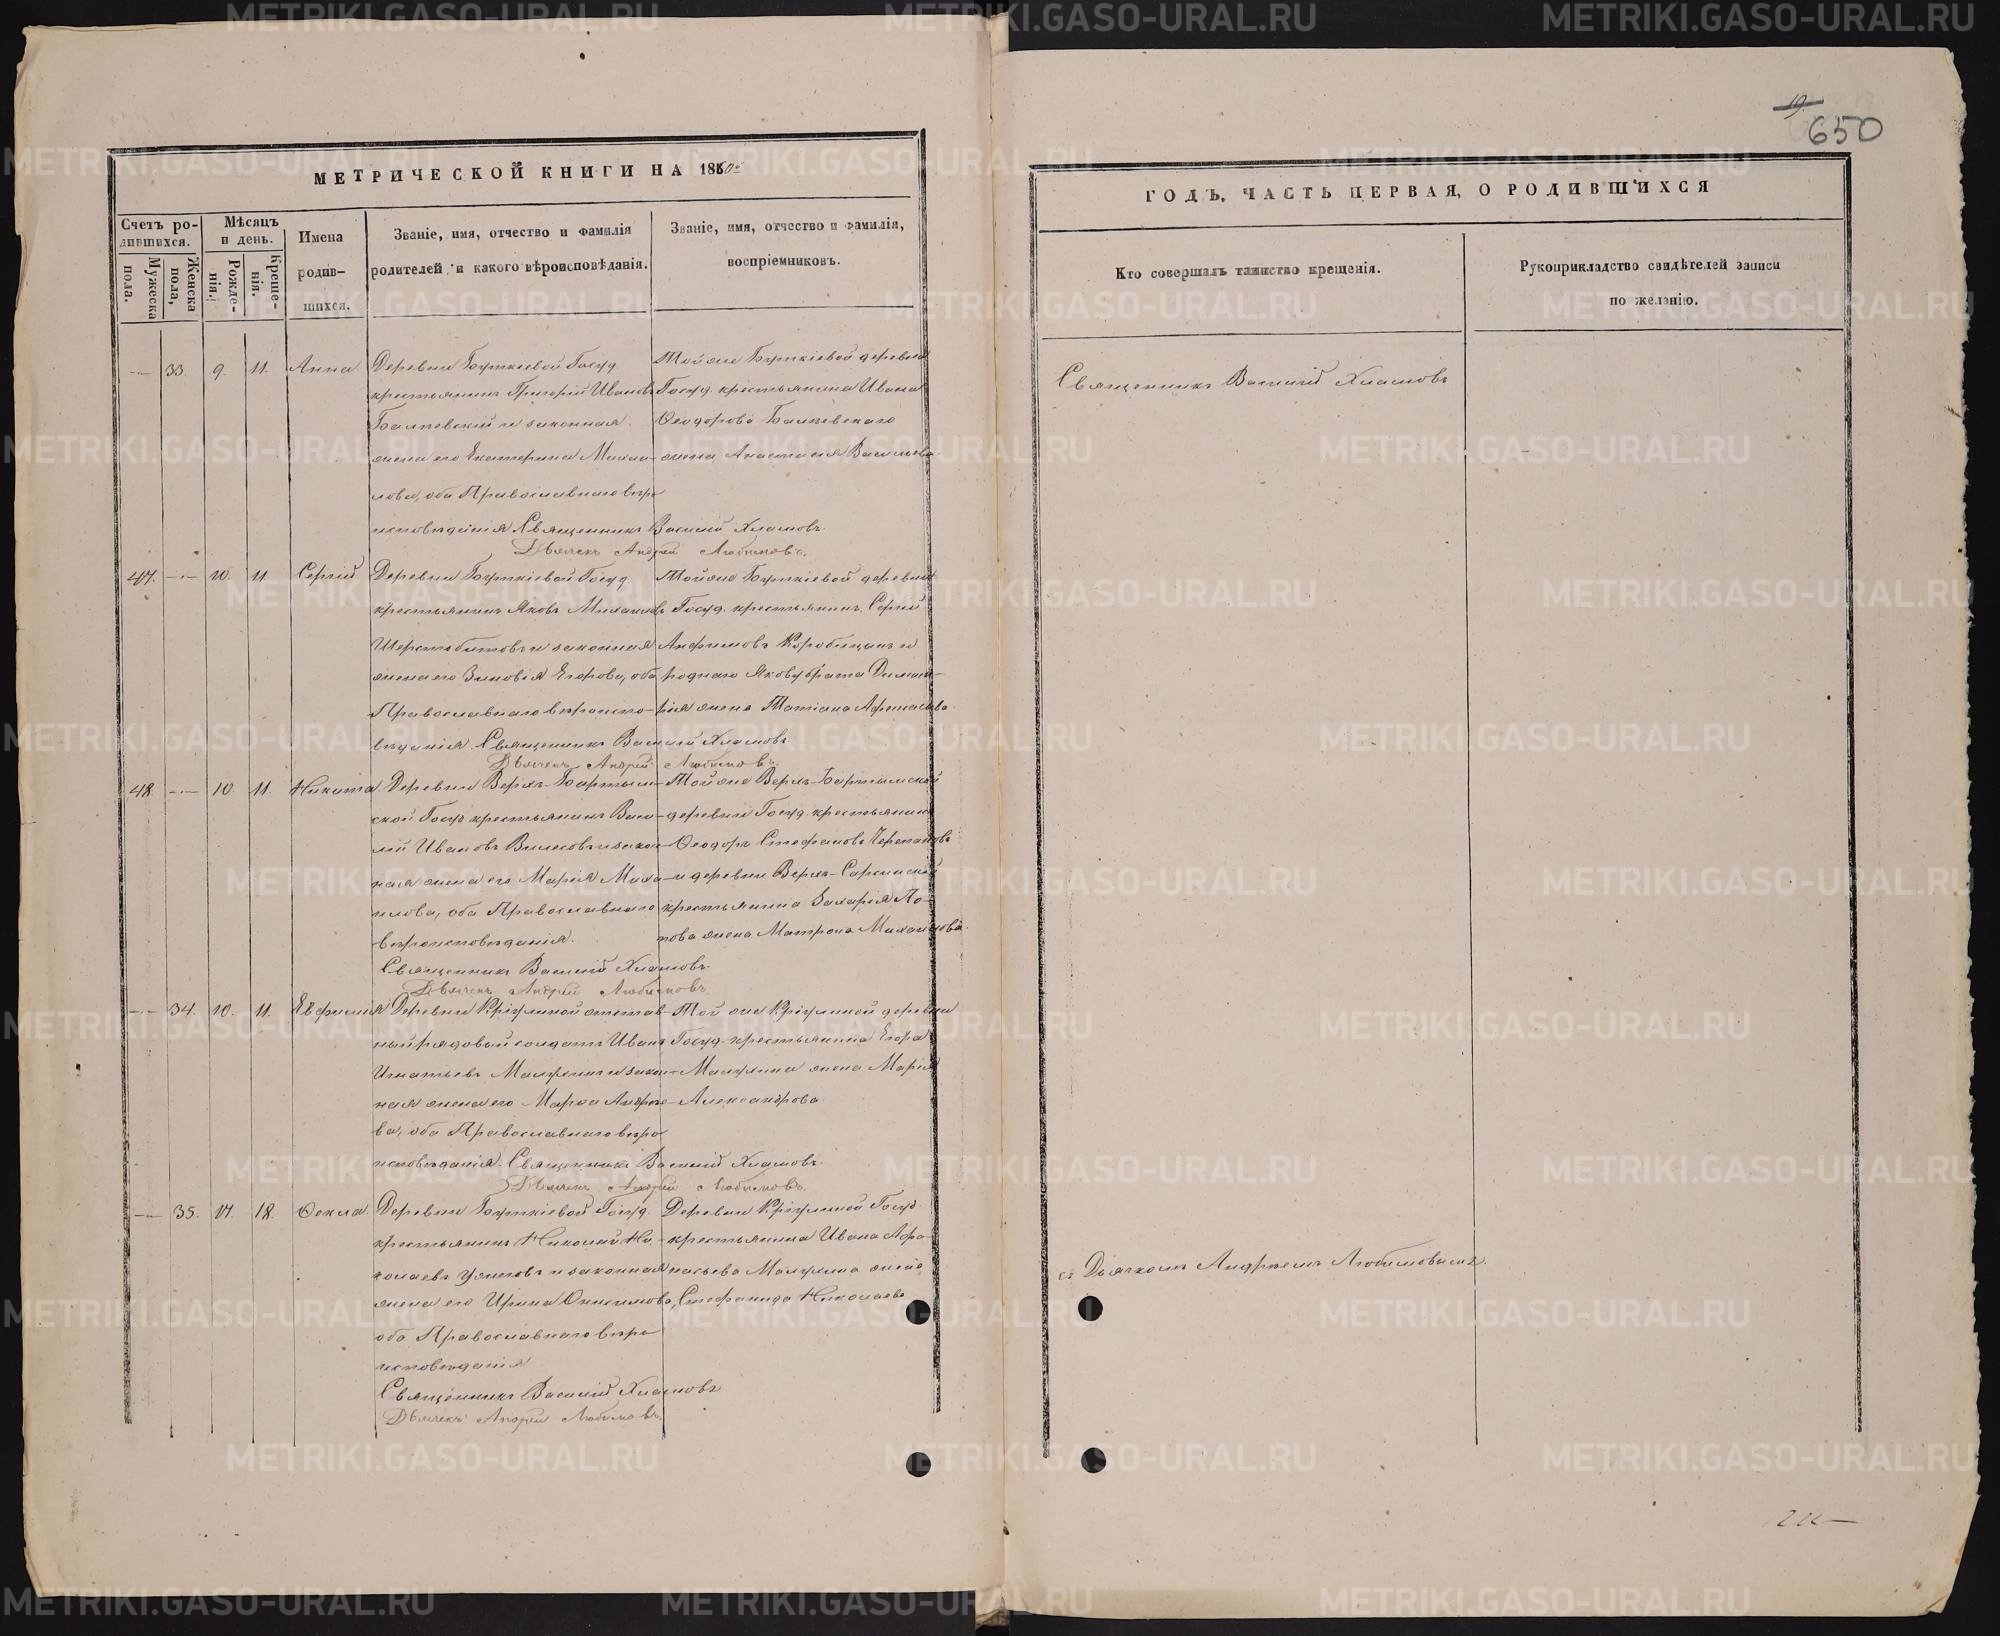 МЕТРИЧЕСКОЙ КНИГИ НА 1860й
Счетъ родившихся.
Мужеска пола.
Женска пола,
Мѣсяцъ и день.
Рожденія.
Крещенія.
Имена родившихся.
Званіе, имя, отчество и фамилія
родителей, и какого вѣроисповѣданія.
Званіе, имя, отчество и фамилія,
воспріемниковъ.
33. 9. 11. Анна
Деревни Госуд.
крестьянинъ Григорій Ивановъ
и законная
жена его Екатерина Михаи-
лова, оба Православнаго вѣро
исповѣданія Священникъ Василій Хламовъ.
Дьячекъ Андрей Любимовъ.
Той же деревни
Госуд. крестьянина Ивана
Ѳеодорова
жена Анастасія Васильева.
47. 10. 11. Сергій
Деревни Госуд
крестьянинъ Яковъ Михаиловъ
Шерстобитовъ и законная
жена его Зиновія Егорова, оба
Православнаго вѣроиспо-
вѣданія Священникъ Василій Хламовъ
Дьячекъ Андрей Любимовъ.
Той же деревни
Госуд. крестьянинъ Сергій
Анфимовъ Коробицынъ и
роднаго Якову брата Димит-
рія жена Татіана Афанасьева.
48. 10. 11. Никита.
Деревни Верхъ-Бартым-
ской Госуд крестьянинъ Васи-
лій Ивановъ и закон-
ная жена его Марія Миха-
илова, оба Православнаго
вѣроисповѣданія.
Священникъ Василій Хламовъ.
Дьячекъ Андрей Любимовъ.
Той же Верхъ-Бартымской
деревни Госуд. крестьянинъ
Ѳеодоръ Стефановъ Черепановъ
и деревни Верхъ-Саргинской
крестьянина Захарія По-
това жена Матрона Михаилова.
34. 10. 11. Евфимія
Деревни отстав-
ный рядовой солдатъ Иванъ
Игнатьевъ и закон-
ная жена его Марѳа Андрее-
ва, оба Православнаго вѣро
исповѣданія. Священникъ Василій Хламовъ
Дьячекъ Андрей Любимовъ.
Той же деревни
Госуд. крестьянина Егора
жена Марія
Александрова
35. 17. 18. Ѳекла.
Деревни Госуд.
крестьянинъ Николай Ни-
колаевъ и законная
жена его Ирина Онисимова,
оба Православнаго вѣро
исповѣданія
Священникъ Василій Хламовъ
Дьячекъ Андрей Любимовъ.
Деревни Госуд
крестьянина Ивана Афа-
насьева жена
Стефанида Николаева
19.
650
ГОДЪ, ЧАСТЬ ПЕРВАЯ, О РОДИВШИХСЯ
Кто совершалъ таинство крещенія.
Рукоприкладство свидѣтелей записи
по желанію.
Священникъ Василій Хламовъ
съ Дьячкомъ Андреемъ Любимовымъ.
METRIKI.GASO-URAL.RU